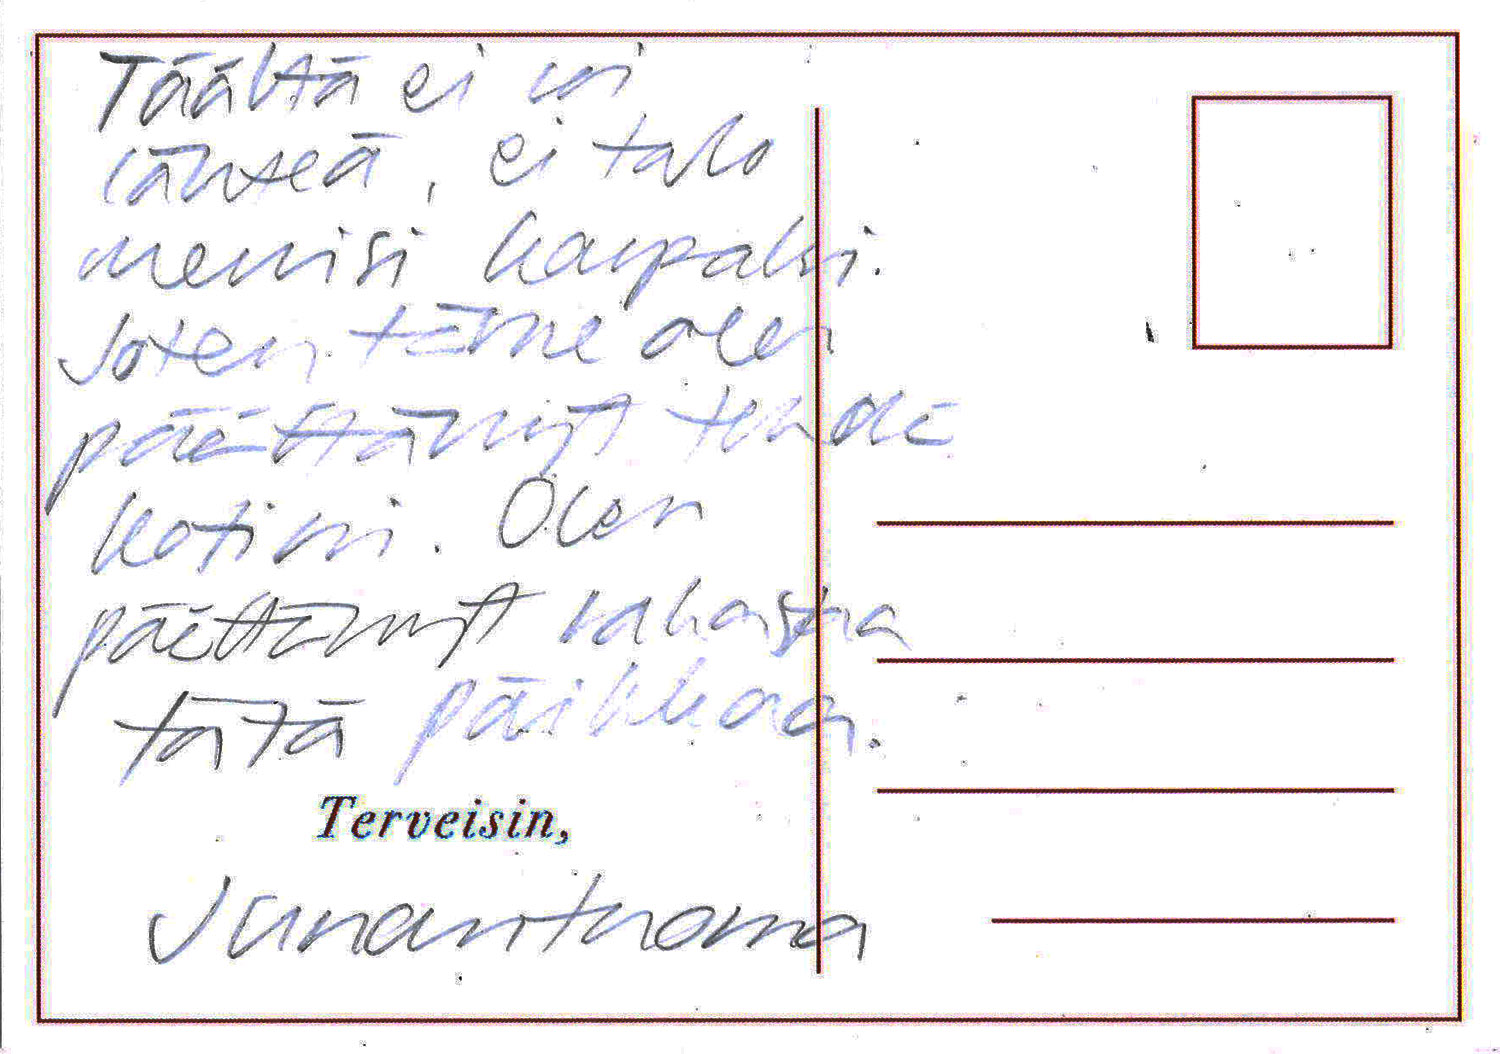 Täältä ei voi
lähteä, ei talo
menisi kaupaksi.
Joten tänne olen
päättänyt tehdä
kotini. Olen
päättänyt rakastaa
tätä paikkaa.
Terveisin,
Junantuoma